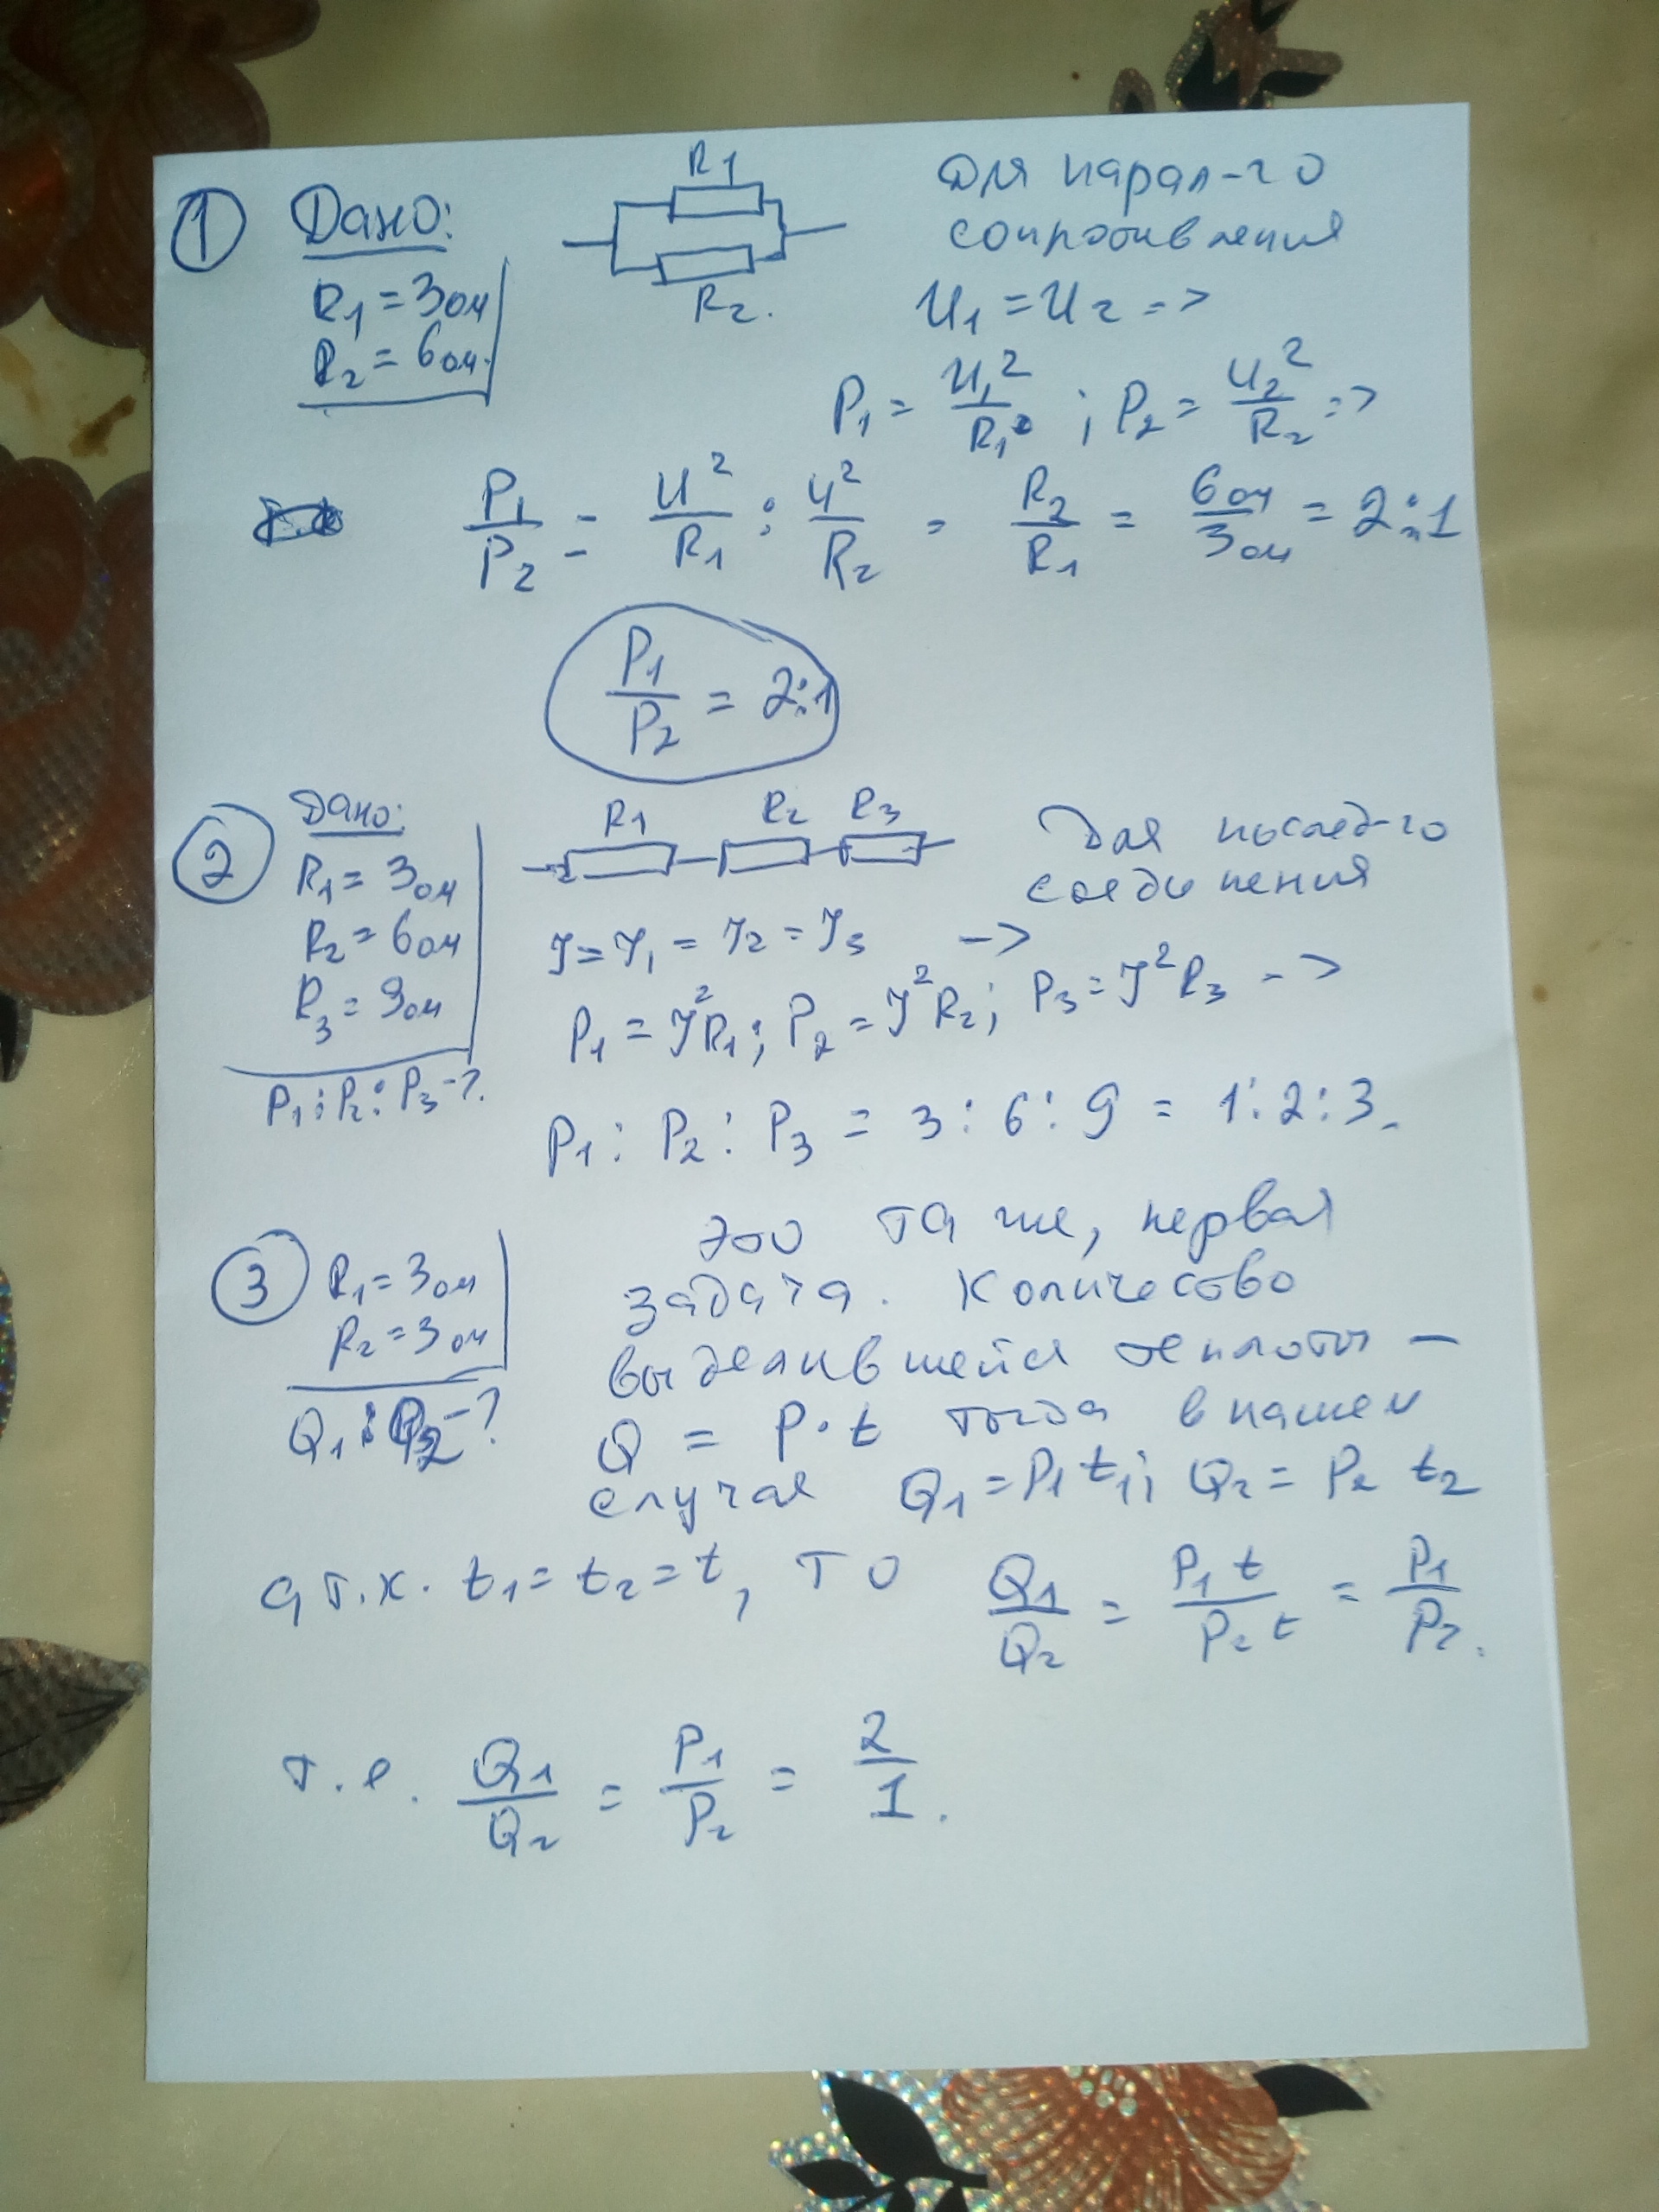 1 Дано:
R1 = 3ом
R2 = 6ом.
R1
R2.
Для парал-го
сопротивления
U1 = U2 =>
P1 = U1²/R1 ; P2 = U2²/R2 =>
P1/P2 = U²/R1 : U²/R2 = R2/R1 = 6ом/3ом = 2:1
P1/P2 = 2:1
2 Дано:
R1 = 3ом
R2 = 6ом
R3 = 9ом
P1 : P2 : P3 -?.
R1 R2 R3
Для послед-го
соединения
I = I1 = I2 = I3 ->
P1 = I²R1; P2 = I²R2; P3 = I²R3 ->
P1 : P2 : P3 = 3 : 6 : 9 = 1 : 2 : 3.
3 R1 = 3ом
R2 = 3ом
Q1 : Q2 -?
это та же, первая
задача. Количество
выделившейся теплоты –
Q = P·t тогда в нашем
случае Q1 = P1 t1; Q2 = P2 t2
а т.к. t1 = t2 = t, то Q1/Q2 = P1 t/P2 t = P1/P2.
т.е. Q1/Q2 = P1/P2 = 2/1.